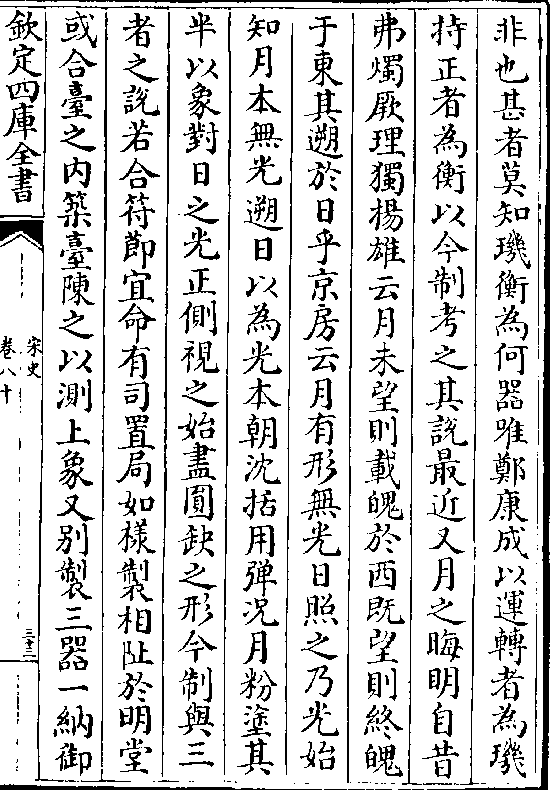 非也甚者莫知璣衡為何器唯鄭康成以運轉者為璣
持正者為衡以今制考之其説最近又月之晦明自昔
弗燭厥理獨揚雄云月未望則載魄於西既望則終魄
于東其遡於日乎京房云月有形無光日照之乃光始
知月本無光遡日以為光本朝沈括用弹况月粉塗其
半以象對日之光正側視之始盡圓缺之形今制與三
者之説若合符節宜命有司置局如様製相阯於明堂
或合臺之内築臺陳之以測上象又别製三器一納御
欽定四庫全書
宋史
卷八十
三十三